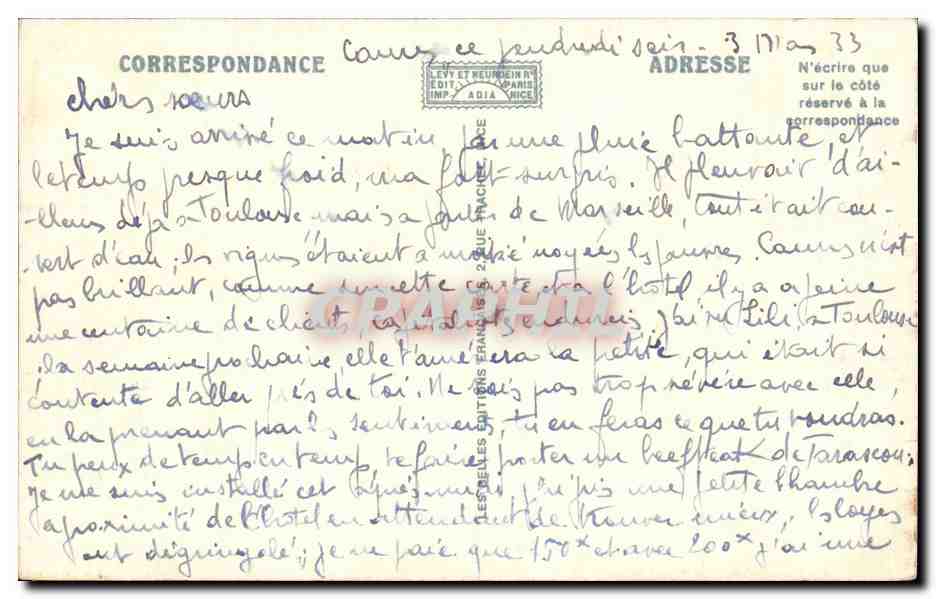 Cannes ce vendredi soir - 3 Mars 33
CORRESPONDANCE
ADRESSE
LEVY ET NEURDEIN Rs
EDIT. PARIS
IMP. ADIA NICE
N'écrire que
sur le côté
réservé à la
correspondance
LES BELLES EDITIONS FRANÇAISES 2, RUE TRACHEL, NICE
chérs sœurs
Je suis arrivé ce matin par une pluie battante, et
le temp presque froid, m'a fort surpris. Il pleuvait d'ai-
-lleurs déjà a Toulouse mais a partir de Marseille, tout était cou-
-vert d'eau; les vignes étaient a moitié noyées les pauvres. Cannes n'est
pas brillant, comme sur cette carte et a l'hotel il y a a peine
une centaine de clients, j'ai vu Lili a Toulouse
la semaine prochaine, elle t'amenera la petite, qui était si
contente d'aller près de toi. Ne sois pas trop sévère avec elle
en la prenant par les sentiments, tu en feras ce que tu voudras.
Tu peux de temp en temp, te faire porter un beefteak de Tarascon;
Je me suis installé cet après midi, j'ai pris une petite chambre
a proximité de l'hotel en attendant de trouver mieux, les loyers
ont dégringolé; je ne paie que 150x et avec 200x j'ai une
CPAPHIL